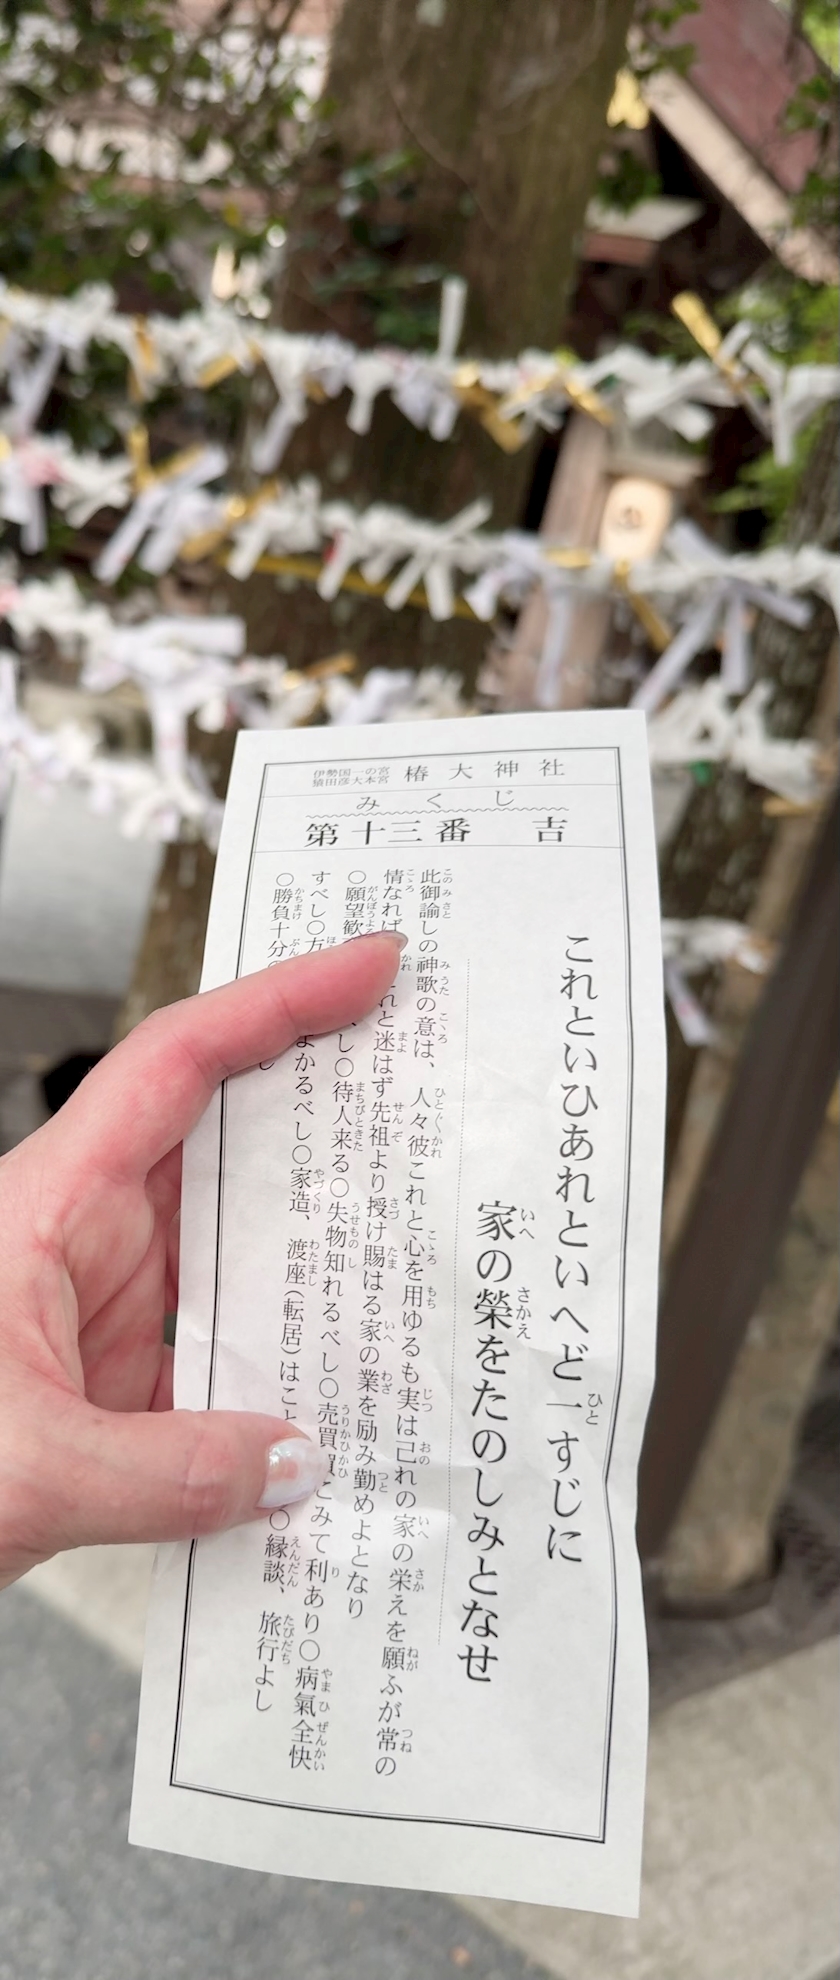 伊勢国一の宮
猿田彦大本宮
椿大神社
みくじ
第十三番 吉
これといひあれといへど一すじに
家の榮をたのしみとなせ
此御諭しの神歌の意は、人々彼これと心を用ゆるも実は己れの家の栄えを願ふが常の
情なれば れと迷はず先祖より授け賜はる家の業を励み勤めよとなり
○願望歓 し○待人来る○失物知れるべし○売買買こみて利あり○病氣全快
すべし○方 よかるべし○家造、渡座(転居)はこと ○縁談、旅行よし
○勝負十分の し